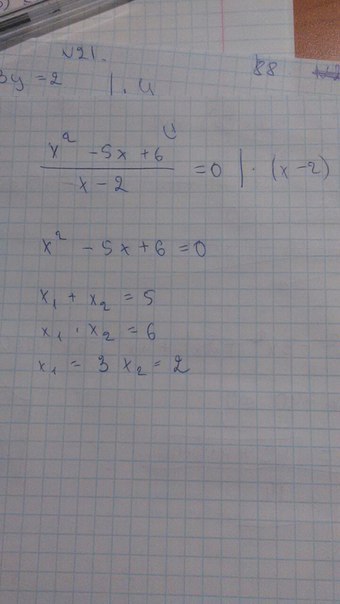 №21.
3y = 2 | · 4
88
x² - 5x + 6
───────── = 0 | · (x - 2)
x - 2
x² - 5x + 6 = 0
x₁ + x₂ = 5
x₁ · x₂ = 6
x₁ = 3 x₂ = 2